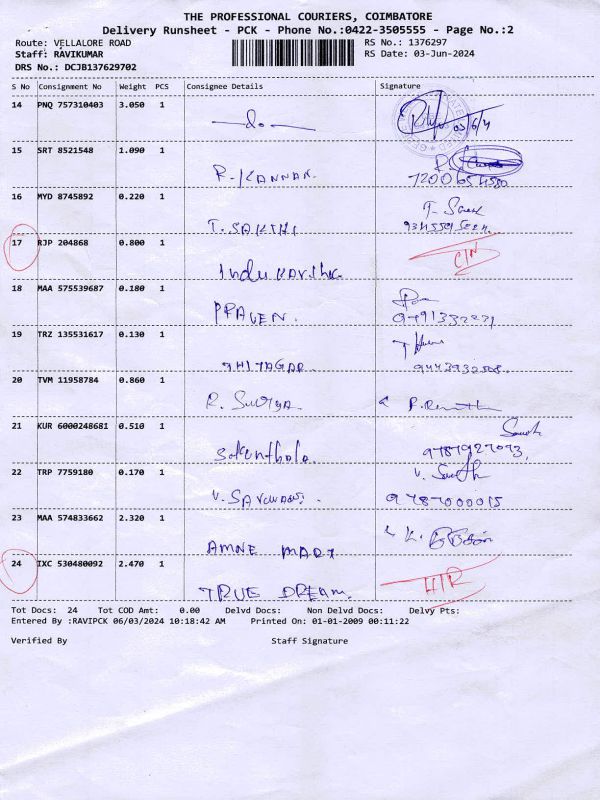 THE PROFESSIONAL COURIERS, COIMBATORE
Delivery Runsheet - PCK - Phone No.:0422-3505555 - Page No.:2
Route: VELLALORE ROAD RS No.: 1376297
Staff: RAVIKUMAR RS Date: 03-Jun-2024
DRS No.: DCJB137629702
S No Consignment No Weight PCS Consignee Details Signature
14 PNQ 757310403 3.050 1
do
15 SRT 8521548 1.090 1
R. KANNAN.
16 MYD 8745892 0.220 1
T. SAKTHI
17 RJP 204868 0.800 1
Indu
18 MAA 575539687 0.180 1
PRAVEN.
19 TRZ 135531617 0.130 1
20 TVM 11958784 0.860 1
R. Surya
21 KUR 6000248681 0.510 1
22 TRP 7759180 0.170 1
V.
9787000015
23 MAA 574833662 2.320 1
AMNE MARY
24 IXC 530480092 2.470 1
TRUE DREAM.
Tot Docs: 24 Tot COD Amt: 0.00 Delvd Docs: Non Delvd Docs: Delvy Pts:
Entered By :RAVIPCK 06/03/2024 10:18:42 AM Printed On: 01-01-2009 00:11:22
Verified By Staff Signature